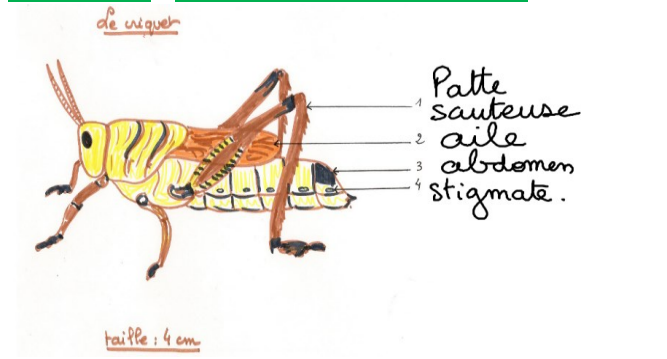 Le criquet
Patte
1 sauteuse
2 aile
3 abdomen
4 stigmate.
taille : 4 cm